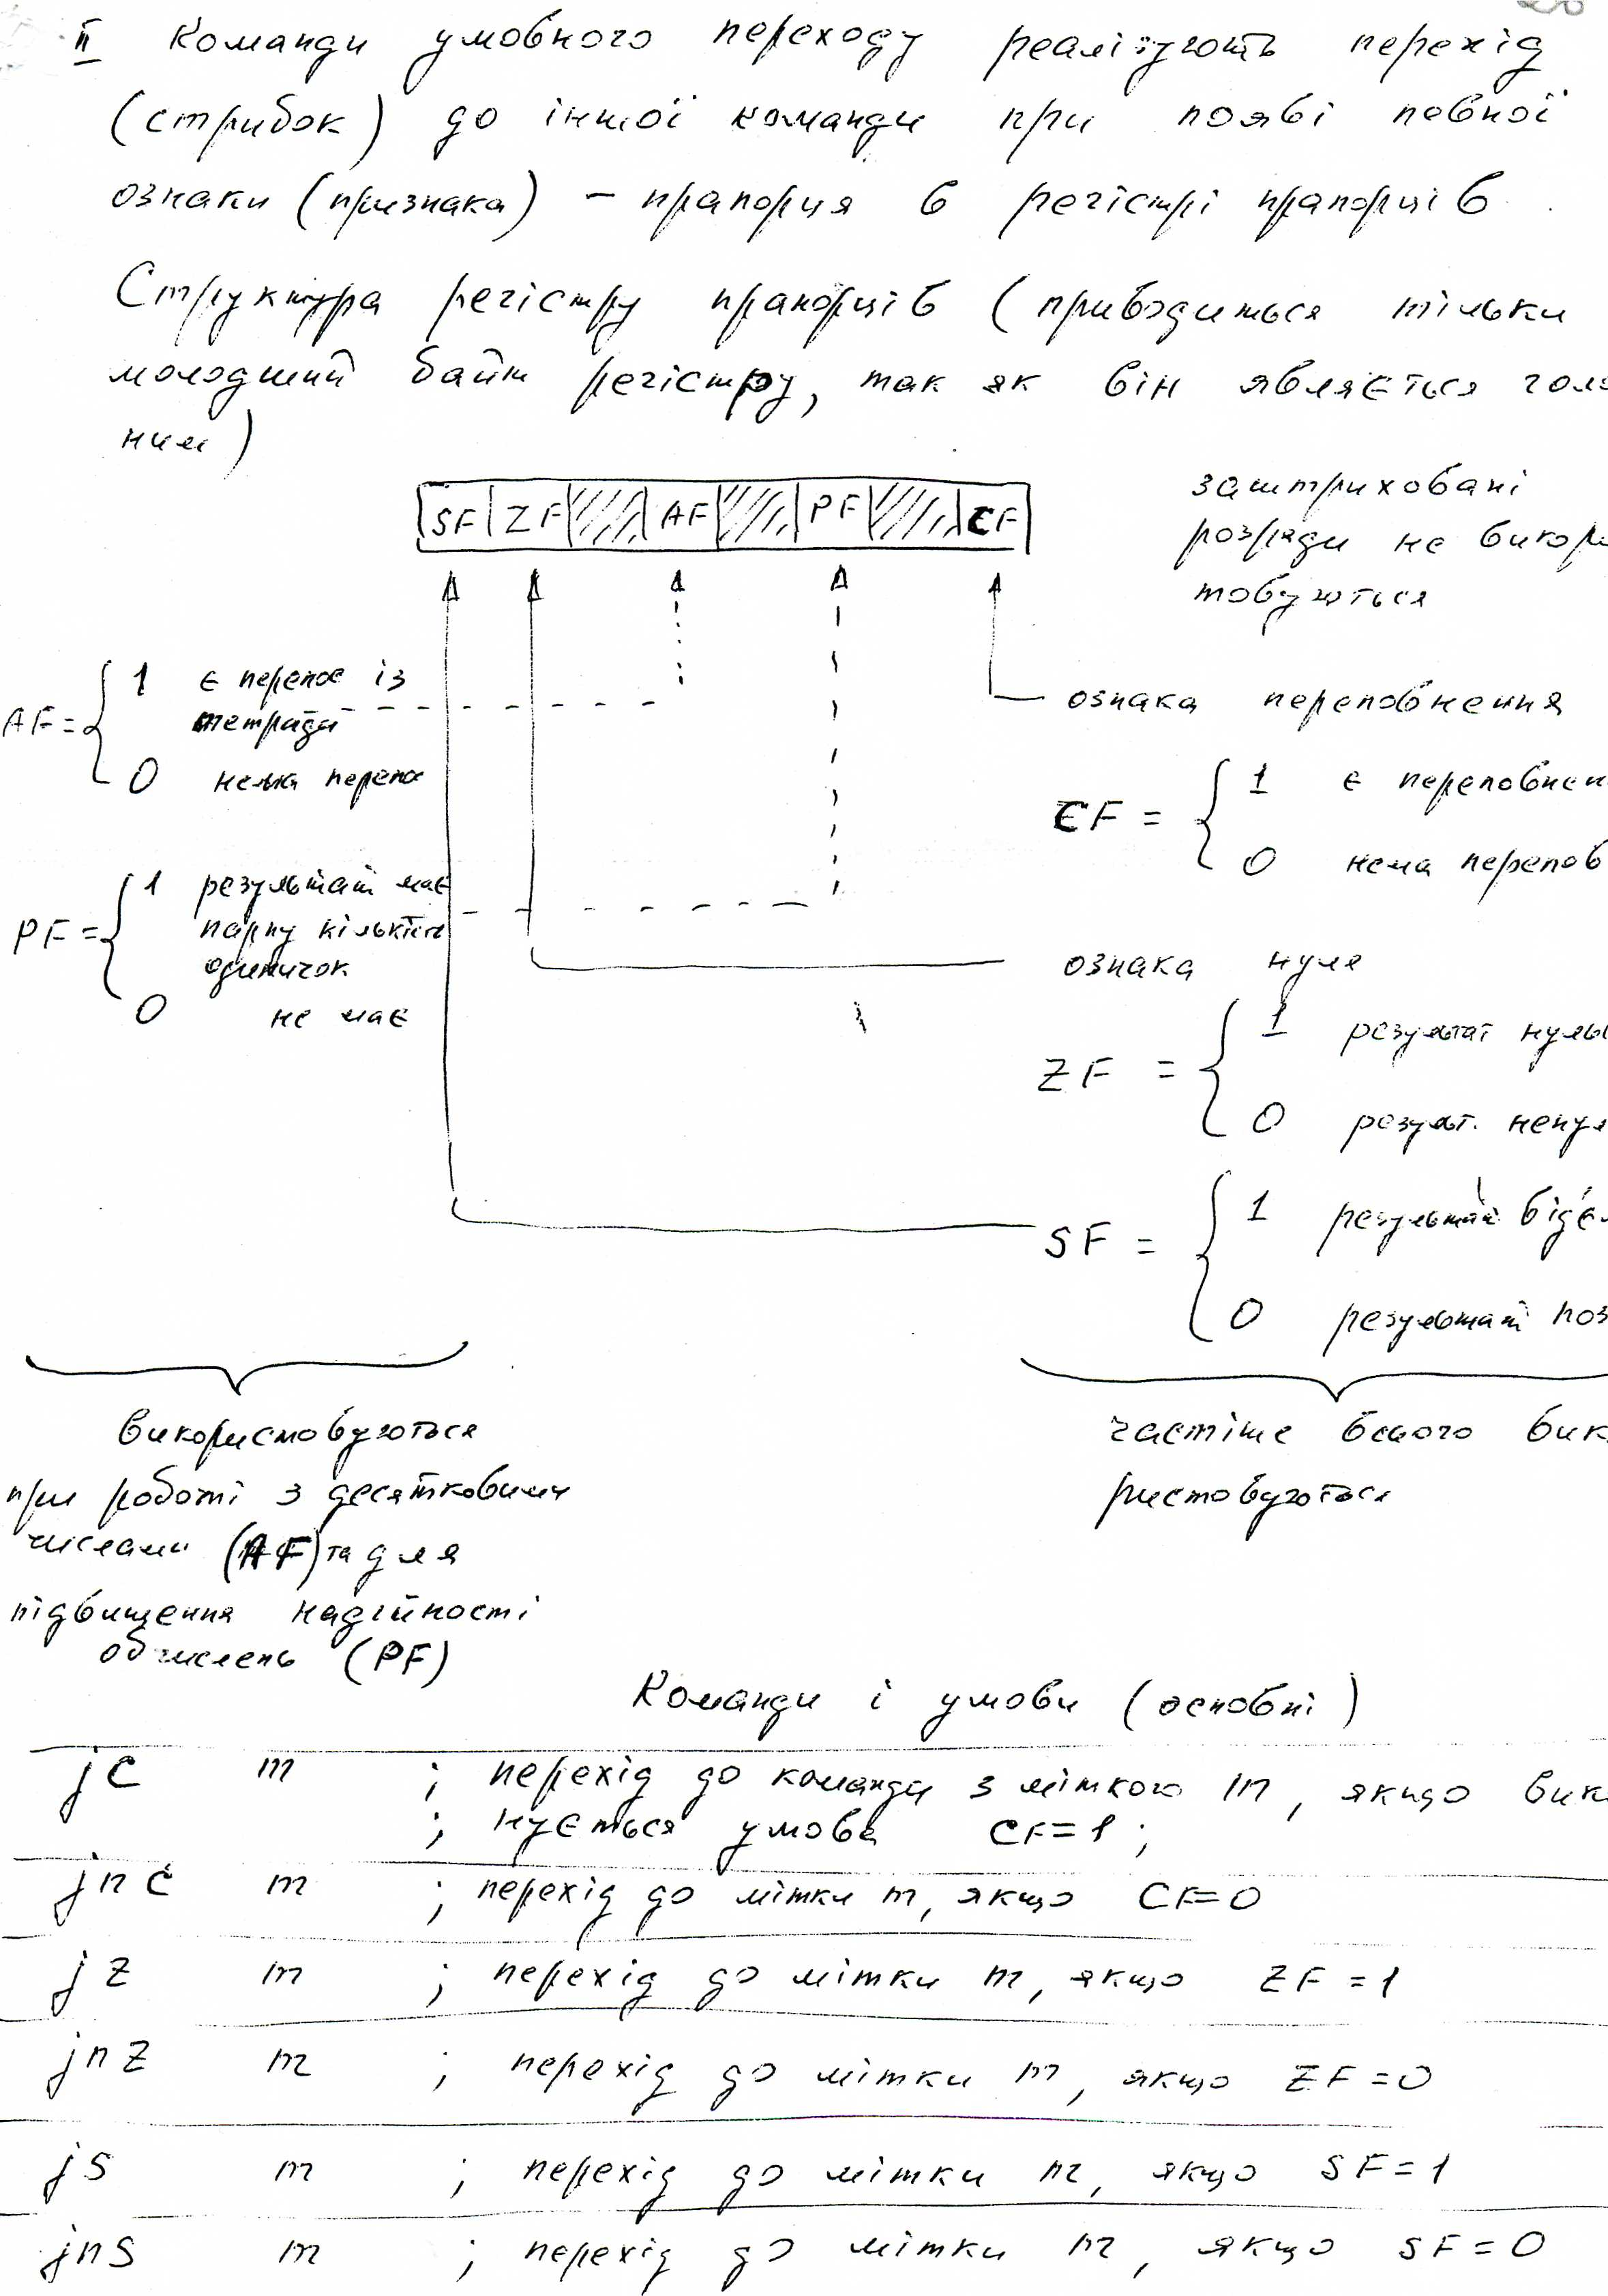 II Команди умовного переходу реалізують перехід
(стрибок) до іншої команди при появі певної
ознаки (признака) – прапорця в регістрі прапорців.
Структура регістру прапорців (приводиться тільки
молодший байт регістру, так як він являється голо
ним)
SF ZF AF PF CF
заштриховані
розряди не викори
товуються
AF = 1 є перенос із
тетради
0 нема перенос
ознака переповнення
CF = 1 є переповнен
0 нема перепов
PF = 1 результат має
парну кількість
одиничок
0 не має
ознака нуля
ZF = 1 результат нуль
0 результ. ненул
SF = 1 результат від'єм
0 результат поз
використовуються
при роботі з десятковими
числами (AF) та для
підвищення надійності
обчислень (PF)
частіше всього вик
ристовуються
Команди і умови (основні)
jc m ; перехід до команди з міткою m, якщо вик
; нується умова CF=1 ;
jnc m ; перехід до мітки m, якщо CF=0
jz m ; перехід до мітки m, якщо ZF=1
jnz m ; перехід до мітки m, якщо ZF=0
js m ; перехід до мітки m, якщо SF=1
jns m ; перехід до мітки m, якщо SF=0